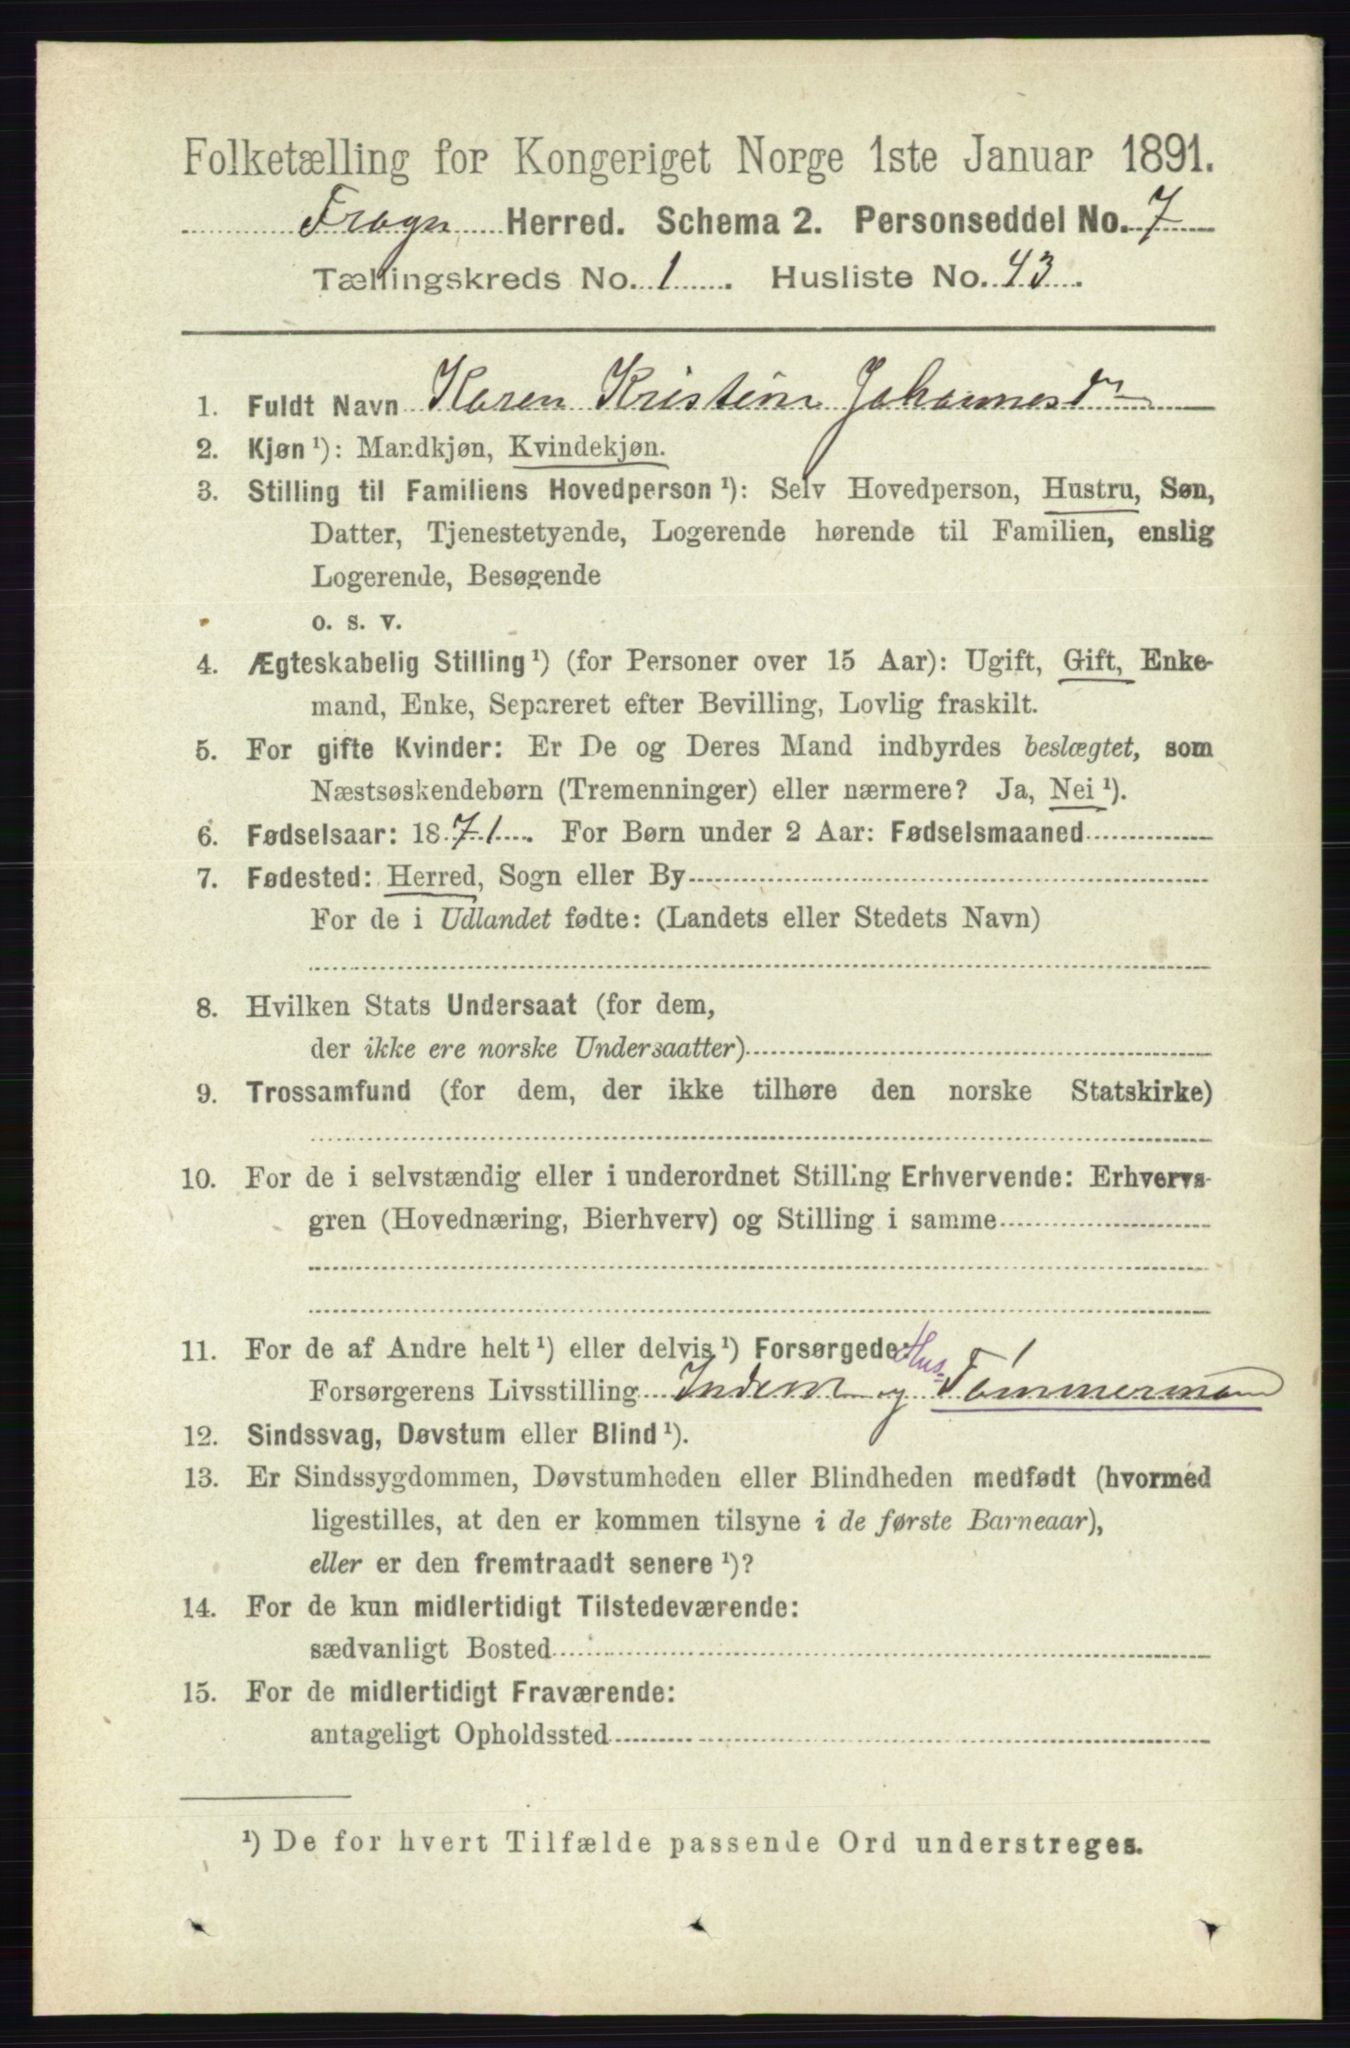 Folketælling for Kongeriget Norge 1ste Januar 1891.
Frogn Herred. Schema 2. Personseddel No. 7
Tællingskreds No. 1. Husliste No. 43.
1. Fuldt Navn Karen Kristine Johannesdr
2. Kjøn ¹): Mandkjøn, Kvindekjøn.
3. Stilling til Familiens Hovedperson ¹): Selv Hovedperson, Hustru, Søn,
Datter, Tjenestetyende, Logerende hørende til Familien, enslig
Logerende, Besøgende
o. s. v.
4. Ægteskabelig Stilling ¹) (for Personer over 15 Aar): Ugift, Gift, Enke-
mand, Enke, Separeret efter Bevilling, Lovlig fraskilt.
5. For gifte Kvinder: Er De og Deres Mand indbyrdes beslægtet, som
Næstsøskendebørn (Tremenninger) eller nærmere? Ja, Nei ¹).
6. Fødselsaar: 1871. For Børn under 2 Aar: Fødselsmaaned
7. Fødested: Herred, Sogn eller By
For de i Udlandet fødte: (Landets eller Stedets Navn)
8. Hvilken Stats Undersaat (for dem,
der ikke ere norske Undersaatter)
9. Trossamfund (for dem, der ikke tilhøre den norske Statskirke)
10. For de i selvstændig eller i underordnet Stilling Erhvervende: Erhvervs-
gren (Hovednæring, Bierhverv) og Stilling i samme
11. For de af Andre helt ¹) eller delvis ¹) Forsørgede:
Forsørgerens Livsstilling og Hus- Tømmermand
12. Sindssvag, Døvstum eller Blind ¹).
13. Er Sindssygdommen, Døvstumheden eller Blindheden medfødt (hvormed
ligestilles, at den er kommen tilsyne i de første Barneaar),
eller er den fremtraadt senere ¹)?
14. For de kun midlertidigt Tilstedeværende:
sædvanligt Bosted
15. For de midlertidigt Fraværende:
antageligt Opholdssted
¹) De for hvert Tilfælde passende Ord understreges.